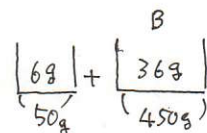 B
6g + 36g
(50g) (450g)